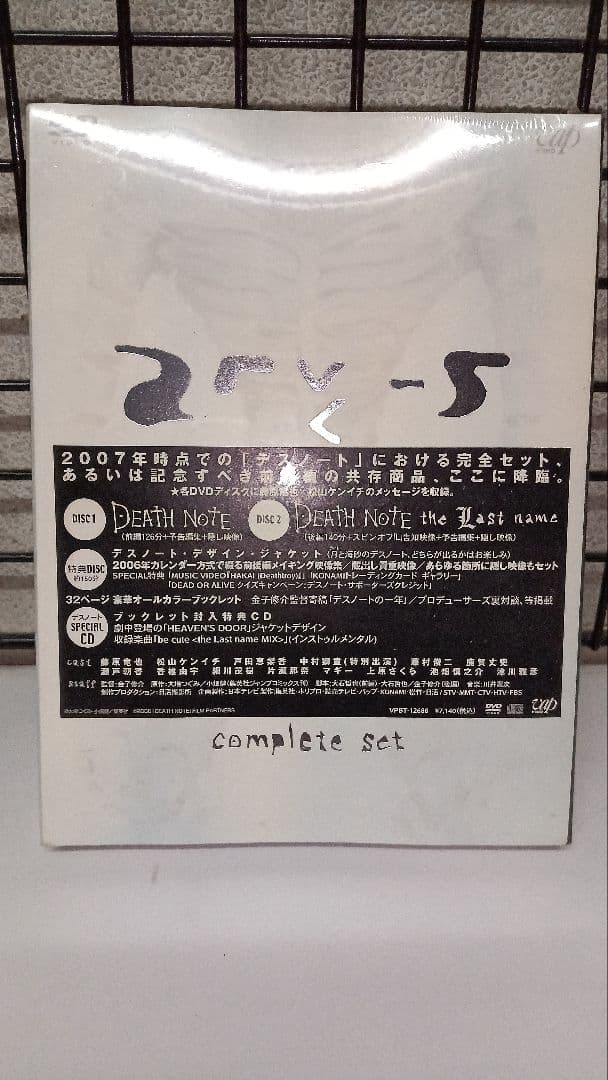 vap
2007年時点での「デスノート」における完全セット、
あるいは記念すべき前後編の共存商品、ここに降臨。
★各DVDディスクに藤原竜也、松山ケンイチのメッセージを収録。
DISC 1 DEATH NOTE DISC 2 DEATH NOTE the Last name
(前編126分+予告編集+隠し映像) (後編140分+スピンオフ「L」告知映像+予告編集+隠し映像)
特典DISC 約150分
デスノート・デザイン・ジャケット(月と海砂のデスノート、どちらが出るかはお楽しみ)
2006年カレンダー方式で綴る前後編メイキング映像集/蔵出し貴重映像/あらゆる箇所に隠し映像もセット
SPECIAL特典「MUSIC VIDEO『HAKAI (Deathtroy)』」「KONAMIトレーディングカード ギャラリー」
「DEAD OR ALIVE クイズキャンペーン:デスノート・サポーターズクレジット」
32ページ 豪華オールカラーブックレット 金子修介監督寄稿「デスノートの一年」/プロデューサーズ裏対談、等掲載
デスノート SPECIAL CD
ブックレット封入特典CD
劇中登場の「HEAVEN'S DOOR」ジャケットデザイン
収録楽曲「be cute <the Last name MIX>」(インストゥルメンタル)
cast 藤原竜也 松山ケンイチ 戸田恵梨香 中村獅童(特別出演) 藤村俊二 鹿賀丈史
瀬戸朝香 香椎由宇 細川茂樹 片瀬那奈 マギー 上原さくら 池畑慎之介 津川雅彦
staff 監督:金子修介
VPBT-12686 ¥7,140(税込) DVD vap
complete set